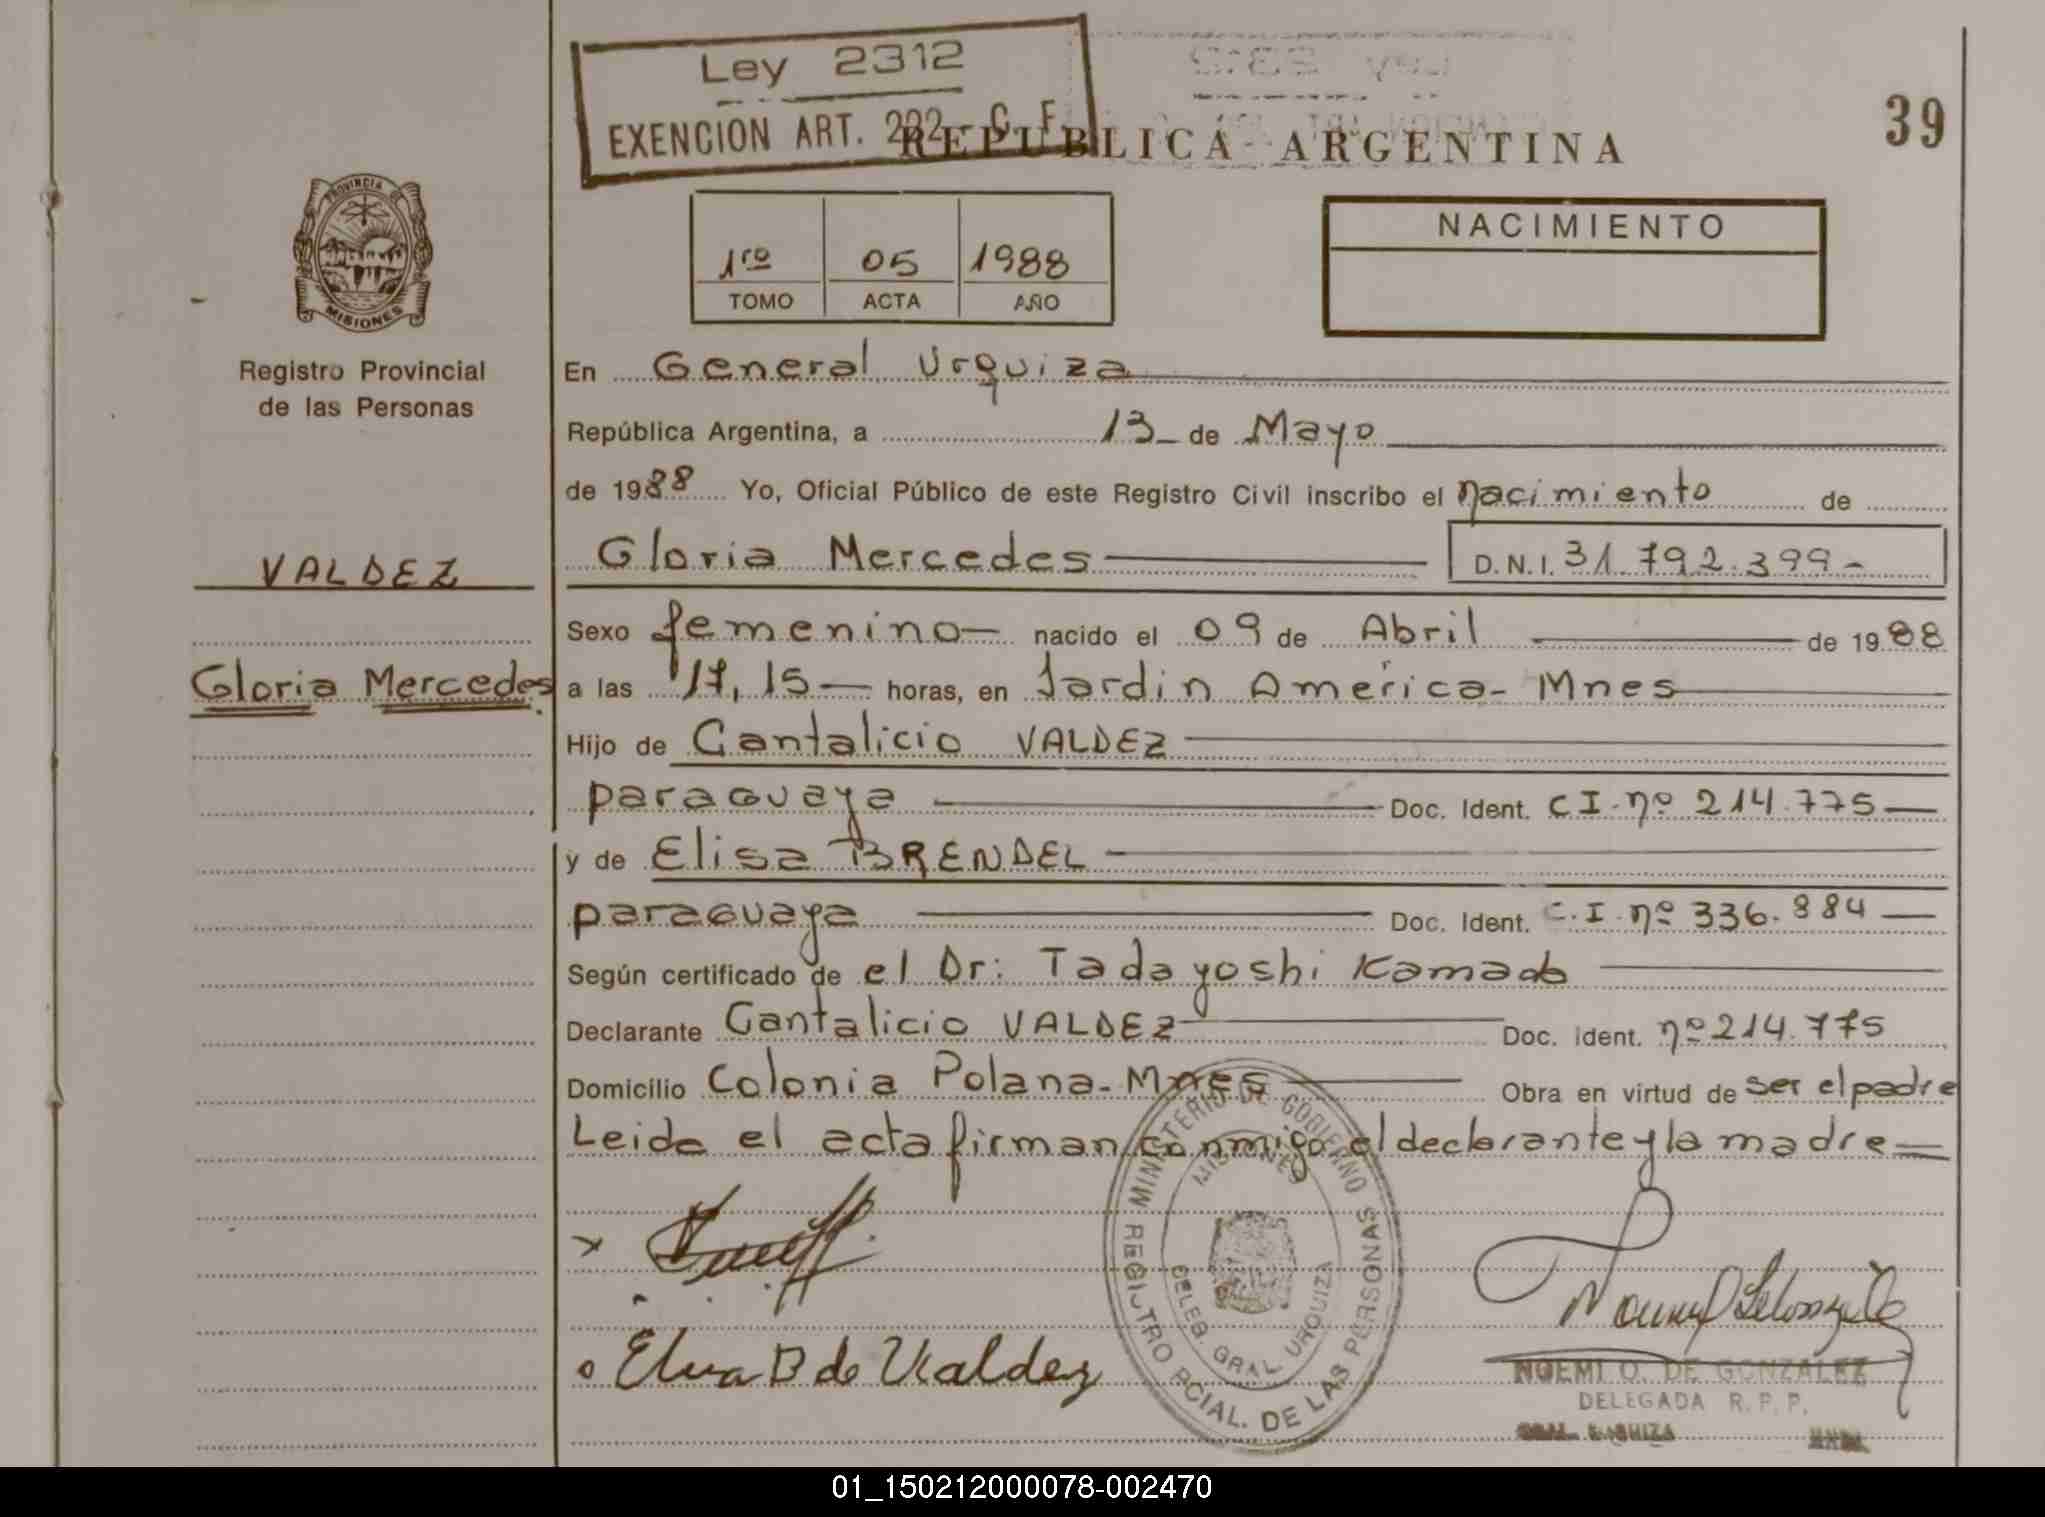 Ley 2312
EXENCION ART. 292 - C. F.
REPUBLICA ARGENTINA
39
PROVINCIA DE
MISIONES
Registro Provincial
de las Personas
1ro 05 1988
TOMO ACTA AÑO
NACIMIENTO
En General Urquiza
República Argentina, a 13 de Mayo
de 1988 Yo, Oficial Público de este Registro Civil inscribo el nacimiento de
VALDEZ
Gloria Mercedes D.N.I. 31.792.399-
Sexo femenino nacido el 09 de Abril de 1988
Gloria Mercedes.
a las 17,15 horas, en Jardin America- Mnes
Hijo de Cantalicio VALDEZ
paraguaya Doc. Ident. C I. nº 214.775
y de Elisa BRENDEL
paraguaya Doc. Ident. C.I. nº 336.884
Según certificado de el Dr: Tadayoshi Kamada
Declarante Cantalicio VALDEZ Doc. Ident. nº 214.775
Domicilio Colonia Polana- Mnes Obra en virtud de ser el padre
Leida el acta firman conmigo el declarante y la madre
MINISTERIO DE GOBIERNO
MISIONES
REGISTRO PCIAL. DE LAS PERSONAS
DELEG. GRAL. URQUIZA
B de Valdez
NOEMI O. DE GONZALEZ
DELEGADA R. P. P.
GRAL. URQUIZA
01_150212000078-002470